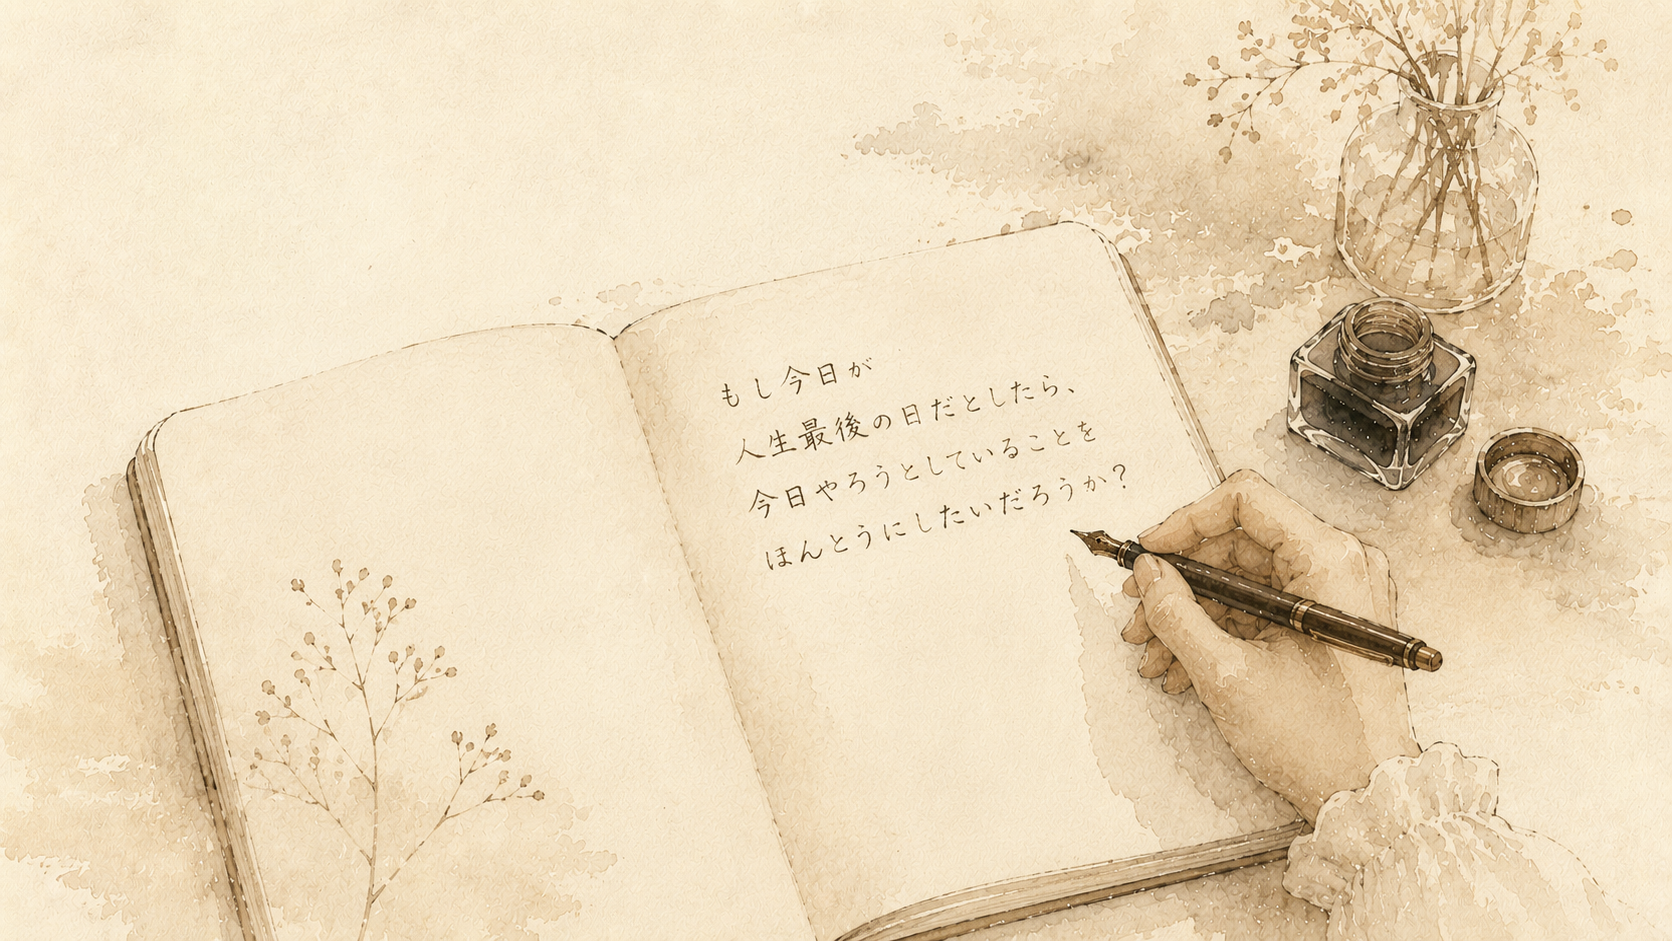 もし今日が
人生最後の日だとしたら、
今日やろうとしていることを
ほんとうにしたいだろうか?